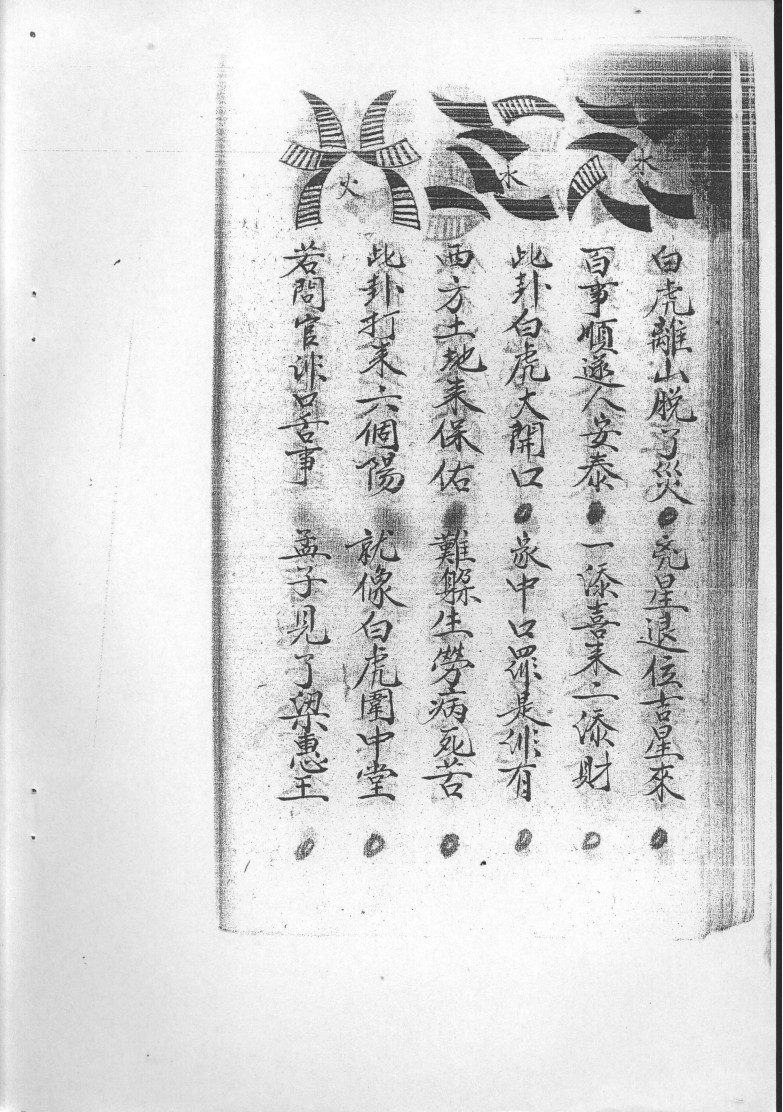 水
水
火
白虎離山脱了災 〇 兇星退位吉星來 〇
百事順遂人安泰 〇 一添喜来二添財 〇
此卦白虎大開口 〇 家中口罪是非有 〇
西方土地来保佑 〇 難躲生勞病死苦 〇
此卦打来六個陽 就像白虎圍中堂 〇
若問官非口舌事 孟子見了梁惠王 〇